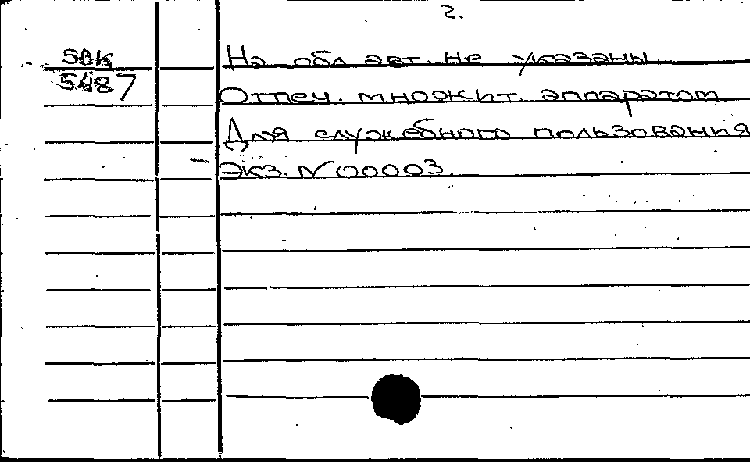 2.
5ВК
5487
На обл авт. не указаны
Отпеч. множит. аппаратом
Для служебного пользования
Экз. N 00003.